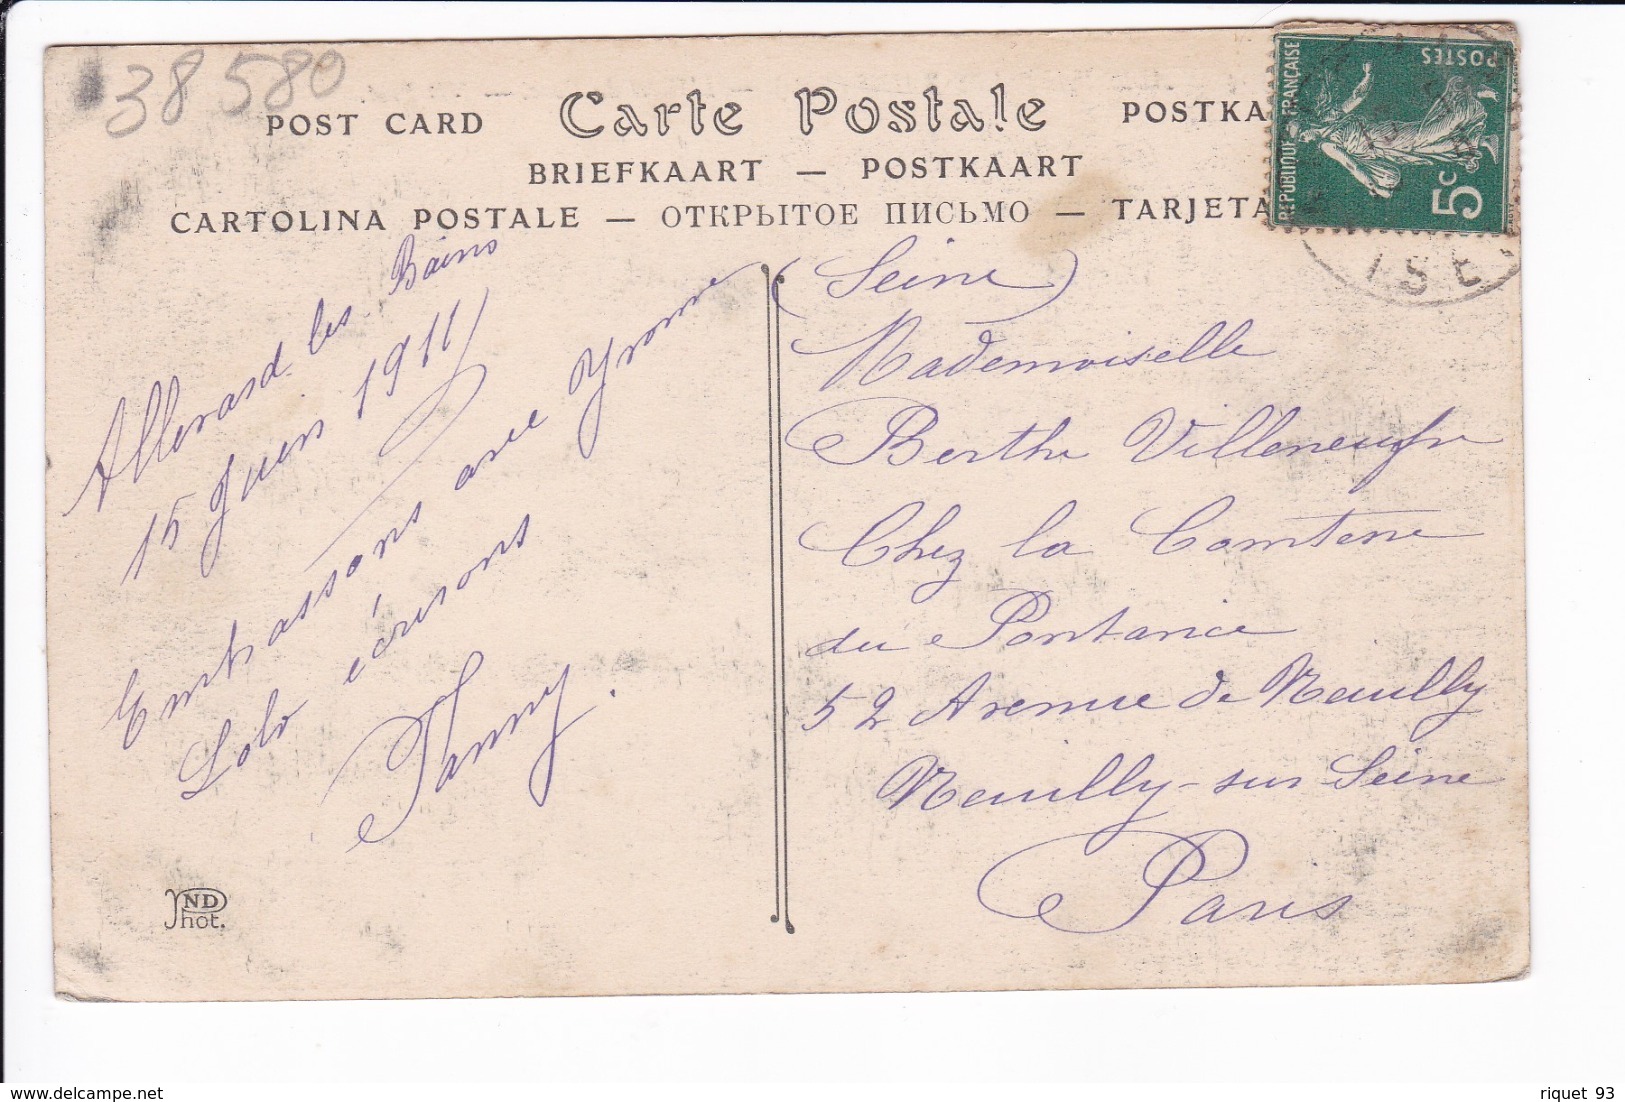 38 580
POST CARD Carte Postale POSTKA
BRIEFKAART — POSTKAART
CARTOLINA POSTALE — ОТКРЫТОЕ ПИСЬМО — TARJETA
REPUBLIQUE FRANÇAISE
POSTES
5c
ISE
Allevard les Bains
15 Juin 1911
Embrassons avec Yvonne
Lolo écrivons
Fanny.
(Seine)
Mademoiselle
Berthe Villeneufve
Chez la Comtesse
du Pontavice
52 Avenue de Neuilly
Neuilly-sur Seine
Paris
ND
Phot.
riquet 93